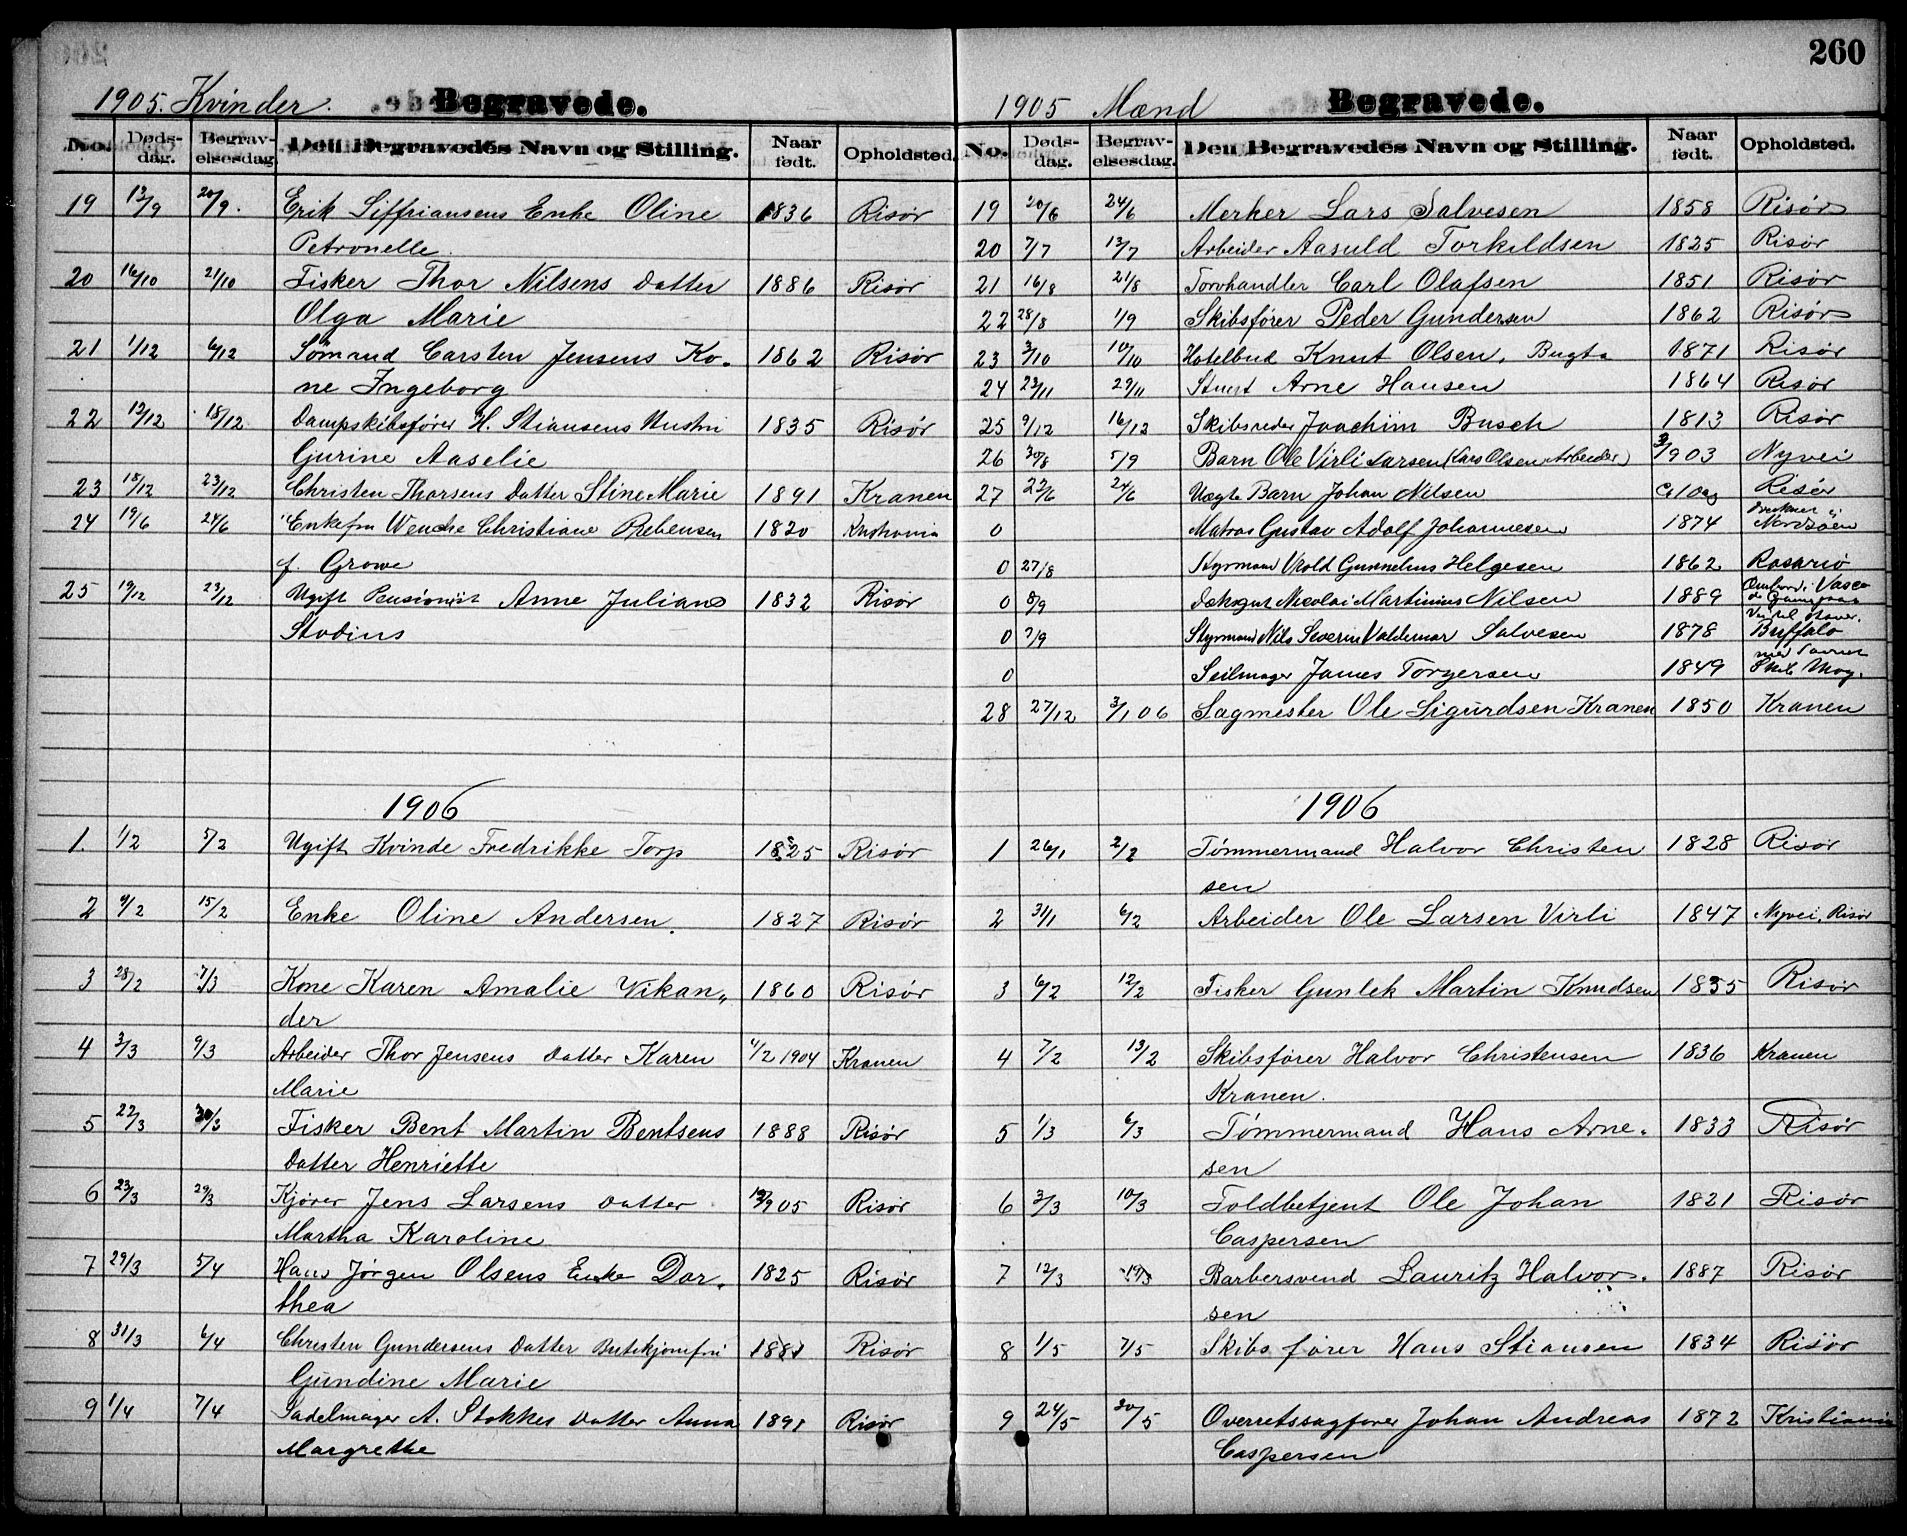 260
1905. Kvinder. Begravede.
No. Døds-dag. Begrav-elsesdag. Den Begravedes Navn og Stilling. Naar født. Opholdsted.
19 13/9 20/9. Erik Siffriansens Enke Oline 1836 Risør
Petronelle.
20 16/10 21/10 Fisker Thor Nilsens Datter 1886 Risør
Olga Marie
21 1/12 6/12 Sømand Carsten Jensens Ko- 1862 Risør
ne Ingeborg
22 13/12 18/12. Dampskibsfører H. Stiansens Hustru 1835 Risør
Gurine Aaselie
23 18/12 23/12 Christen Thorsens Datter Stine Marie 1891 Kranen
24 19/6 24/6 Enkefru Wenche Christiane Rebensen 1820
f. Growe
25 19/12 23/12 Ugift Pensionist Anne Juliane 1832 Risør
Stodius
1906
1. 1/2 5/2 Ugift Kvinde Fredrikke Torp 1825 Risør
2 9/2 15/2 Enke Oline Andersen. 1827 Risør
3 28/2 7/3 Kone Karen Amalie Vikan„ 1860 Risør
der
4 3/3 9/3 Arbeider Thor Jensens Datter Karen /2 1904 Kranen
Marie
5 22/3 30/3 Fisker Bent Martin Bentsens 1888 Risør
Datter Henriette
6 23/3 29/3 Kjører Jens Larsens Datter 905 Risør
Martha Karoline
7 29/3 5/4 Hans Jørgen Olsens Enke Dor- 1825 Risør
thea
8 31/3 6/4 Christen Gundersens Datter Butikjomfru 1881 Risør
Gundine Marie
9 1/4 7/4 Sadelmager A. Stokkes Datter Anna 1891 Risør
Margrethe
1905 Mænd Begravede.
No. Døds-dag. Begrav-elsesdag. Den Begravedes Navn og Stilling. Naar født. Opholdsted.
19 20/6 24/6 Merker Lars Salvesen 1858 Risør
20 7/7 13/7 Arbeider Aasuld Torkildsen 1825 Risør
21 16/8 21/8 Torvhandler Carl Olafsen 1851 Risør
22 28/8 1/9 Skibsfører Peder Gundersen 1862 Risør
23 3/10 10/10 Hotelbud Knut Olsen, Bugta 1871 Risør
24 23/11 29/11 Stuert Arne Hansen 1864 Risør
25 9/12 16/12 Skibsreder Joachim Busch 1813 Risør
26 30/8 5/9 Barn Ole Virli Larsen (Lars Olsen Arbeider) 903 Nyvei
27 22/6 24/6 Uægte Barn Johan Nilsen Risør
0 Matros Gustav Adolf Johannesen 1874 Nordsøen
0 27/8 Styrmand Gunnelius Helgesen 1862 Rosario
0 8/9 Dæksgut Nicolai Martinius Nilsen 1889 Ombord i Vasco de Gama
0 7/9 Styrmand Nils Severin Valdemar Salvesen 1878 Buffalo
0 Seilmager James Torgersen 1849
28 27/12 3/1 06 Sagmester Ole Sigurdsen Kranen 1850 Kranen
1906
1 26/1 2/2 Tømmermand Halvor Christen 1828 Risør
sen
2 31/1 6/2 Arbeider Ole Larsen Virli 1847 Nyvei, Risør
3 6/2 12/2 Fisker Gunlek Martin Knudsen 1835 Risør
4 7/2 13/2 Skibsfører Halvor Christensen 1836 Kranen
Kranen.
5 1/3 6/3 Tømmermand Hans Arne- 1833 Risør
sen
6 3/3 10/3 Toldbetjent Ole Johan 1821 Risør
Caspersen
7 12/3 19/3 Barbersvend Lauritz Halvor- 1887 Risør
sen
8 1/5 7/5 Skibsfører Hans Stiansen 1834 Risør
9 24/5 30/5 Overretssagfører Johan Andreas 1872 Kristiania
Caspersen